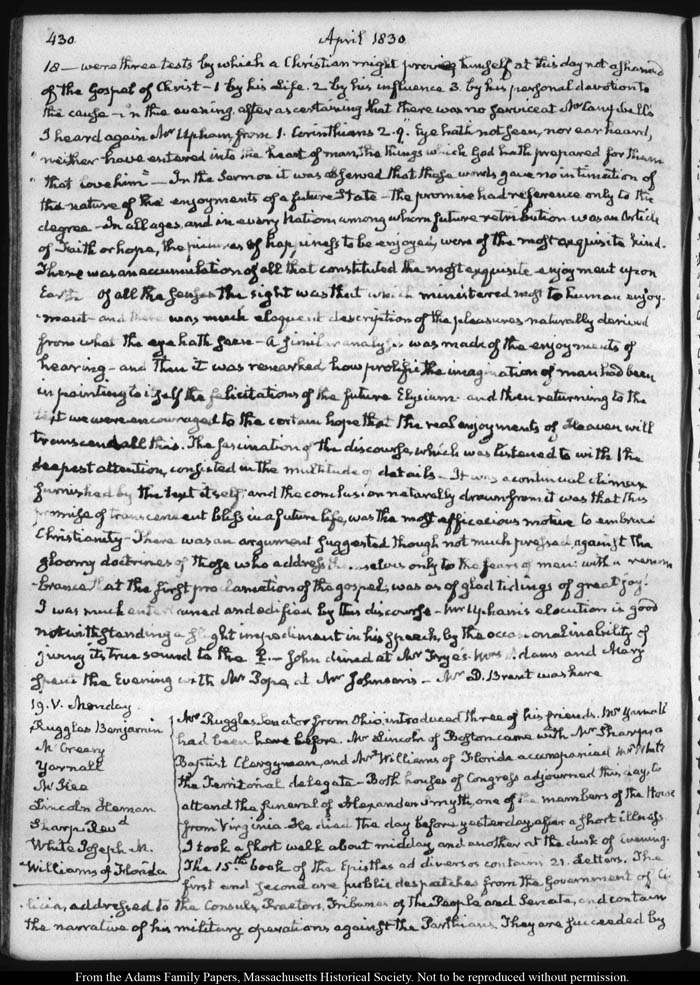 430
April 1830
18 — were three tests by which a Christian might prove himself at this day not ashamed
of the Gospel of Christ — 1 by his Life. 2. by his influence 3. by his personal devotion to
the cause — in the evening, after ascertaining that there was no service at Mr Campbell's
I heard again Mr Upham, from 1. Corinthians 2. 9. "Eye hath not seen, nor ear heard,
"neither have entered into the heart of man, the things which God hath prepared for them
"that love him" — In the Sermon it was observed that those words gave no intimation of
the nature of the enjoyments of a future State — the promise had reference only to the
degree — In all ages, and in every Nation, among whom future retribution was an Article
of Faith or hope, the pictures of happiness to be enjoyed, were of the most exquisite kind.
There was an accumulation of all that constituted the most exquisite enjoyment upon
Earth Of all the senses the sight was that which ministered most to human enjoy-
-ment — and there was much eloquent description of the pleasures naturally derived
from what the eye hath seen — A similar analysis was made of the enjoyments of
hearing — and then it was remarked how prolific the imagination of man had been
in painting to itself the felicitations of the future Elysium. and then returning to the
text we were encouraged to the certain hope that the real enjoyments of Heaven will
transcend all this. The fascination of the discourse, which was listened to with the
deepest attention, consisted in the multitude of details — It was a continual climax
furnished by the text itself; and the conclusion naturally drawn from it was that this
promise of transcendent bliss in a future life, was the most efficacious motive to embrace
Christianity — There was an argument suggested though not much pressed, against the
gloomy doctrines of those who address themselves only to the fears of men: with a remem-
-brance that the first proclamation of the gospel, was as of glad tidings of great joy.
I was much entertained and edified by this discourse — Mr Upham's elocution is good
notwithstanding a slight impediment in his speech, by the occasional inability of
giving its true sound to the — John dined at Mr Frye's. Mrs Adams and Mary
spent the Evening with Mrs Pope, at Mr Johnson's — Mr D. Brent was here
19. V. Monday.
Ruggles Benjamin
McCreary
Yarnall
Lincoln Heman
Sharp Revd
White Joseph M.
Williams of Florida
Mr Ruggles Senator from Ohio, introduced three of his friends. Mr Yarnall
had been here before. Mr Lincoln of Boston came with Mr Sharp, a
Baptist Clergyman, and Mr Williams of Florida accompanied Mr White
the Territorial delegate — Both houses of Congress adjourned this day, to
attend the funeral of Alexander Smyth, one of the members of the House
from Virginia. He died the day before yesterday, after a short illness
I took a short walk about midday, and another at the dusk of Evening.
The 15th book of the Epistles ad diversos contains 21. Letters. The
first and second are public despatches from the Government of Ci-
-licia, addressed to the Consuls, Praetors, Tribunes of the People and Senate, and contain
the narrative of his military operations against the Parthians. They are succeeded by
From the Adams Family Papers, Massachusetts Historical Society. Not to be reproduced without permission.